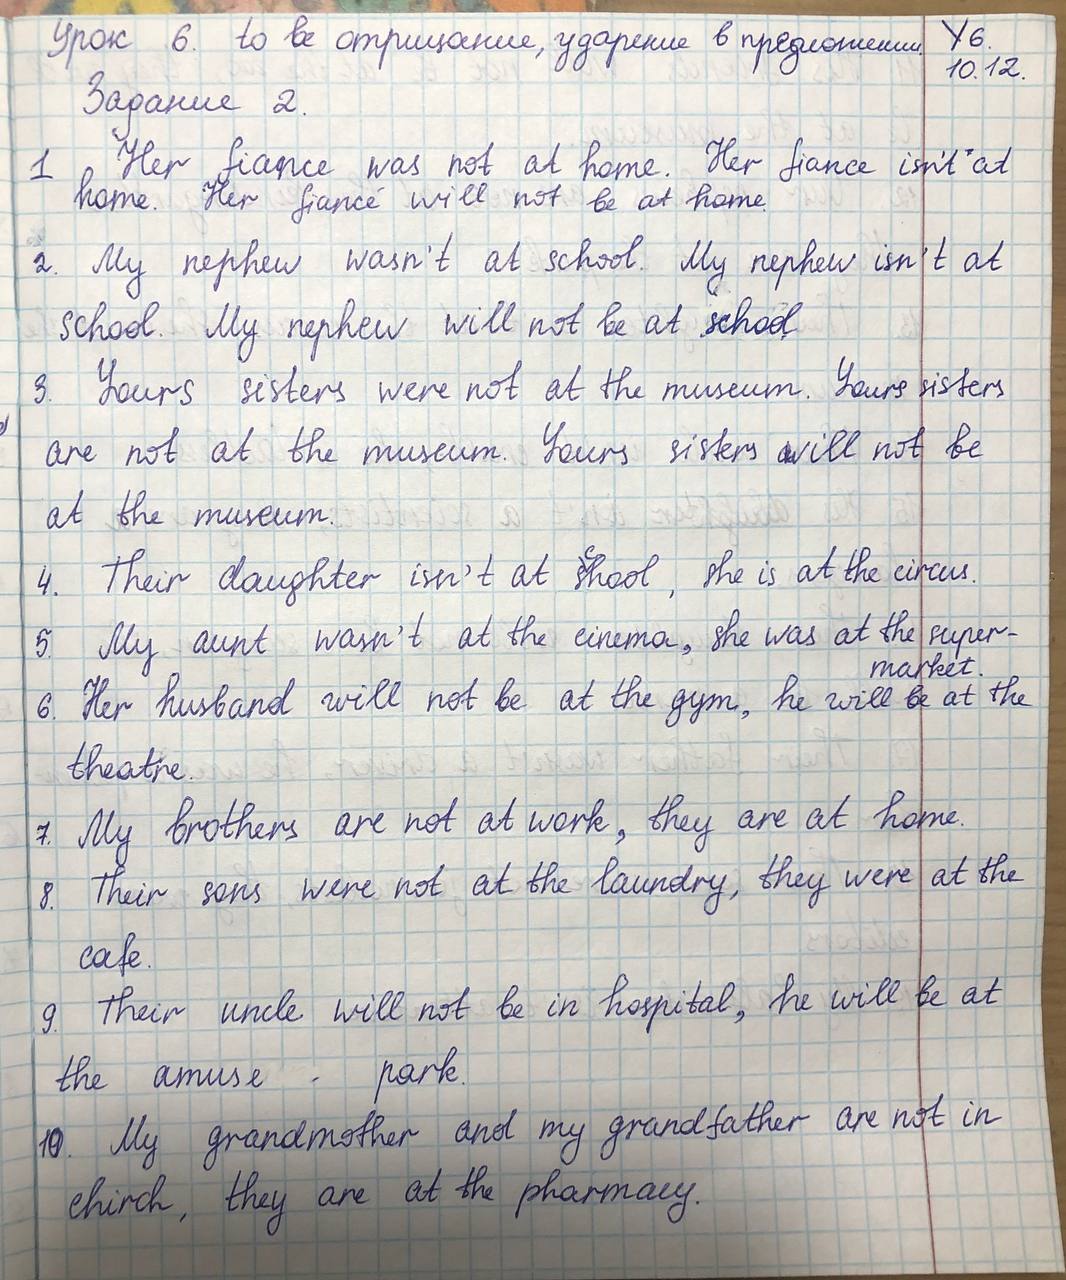 Урок 6. to be отрицание, ударение в предложении. У6.
10.12.
Задание 2.
1 Her fiance was not at home. Her fiance isn't at
home. Her fiancé will not be at home.
2. My nephew wasn't at school. My nephew isn't at
school. My nephew will not be at school.
3. Yours sisters were not at the museum. Yours sisters
are not at the museum. Yours sisters will not be
at the museum.
4. Their daughter isn't at school, she is at the circus.
5. My aunt wasn't at the cinema, she was at the super-
market.
6. Her husband will not be at the gym, he will be at the
theatre.
7. My brothers are not at work, they are at home.
8. Their sons were not at the laundry, they were at the
cafe.
9. Their uncle will not be in hospital, he will be at
the amuse - park.
10. My grandmother and my grandfather are not in
chirch, they are at the pharmacy.